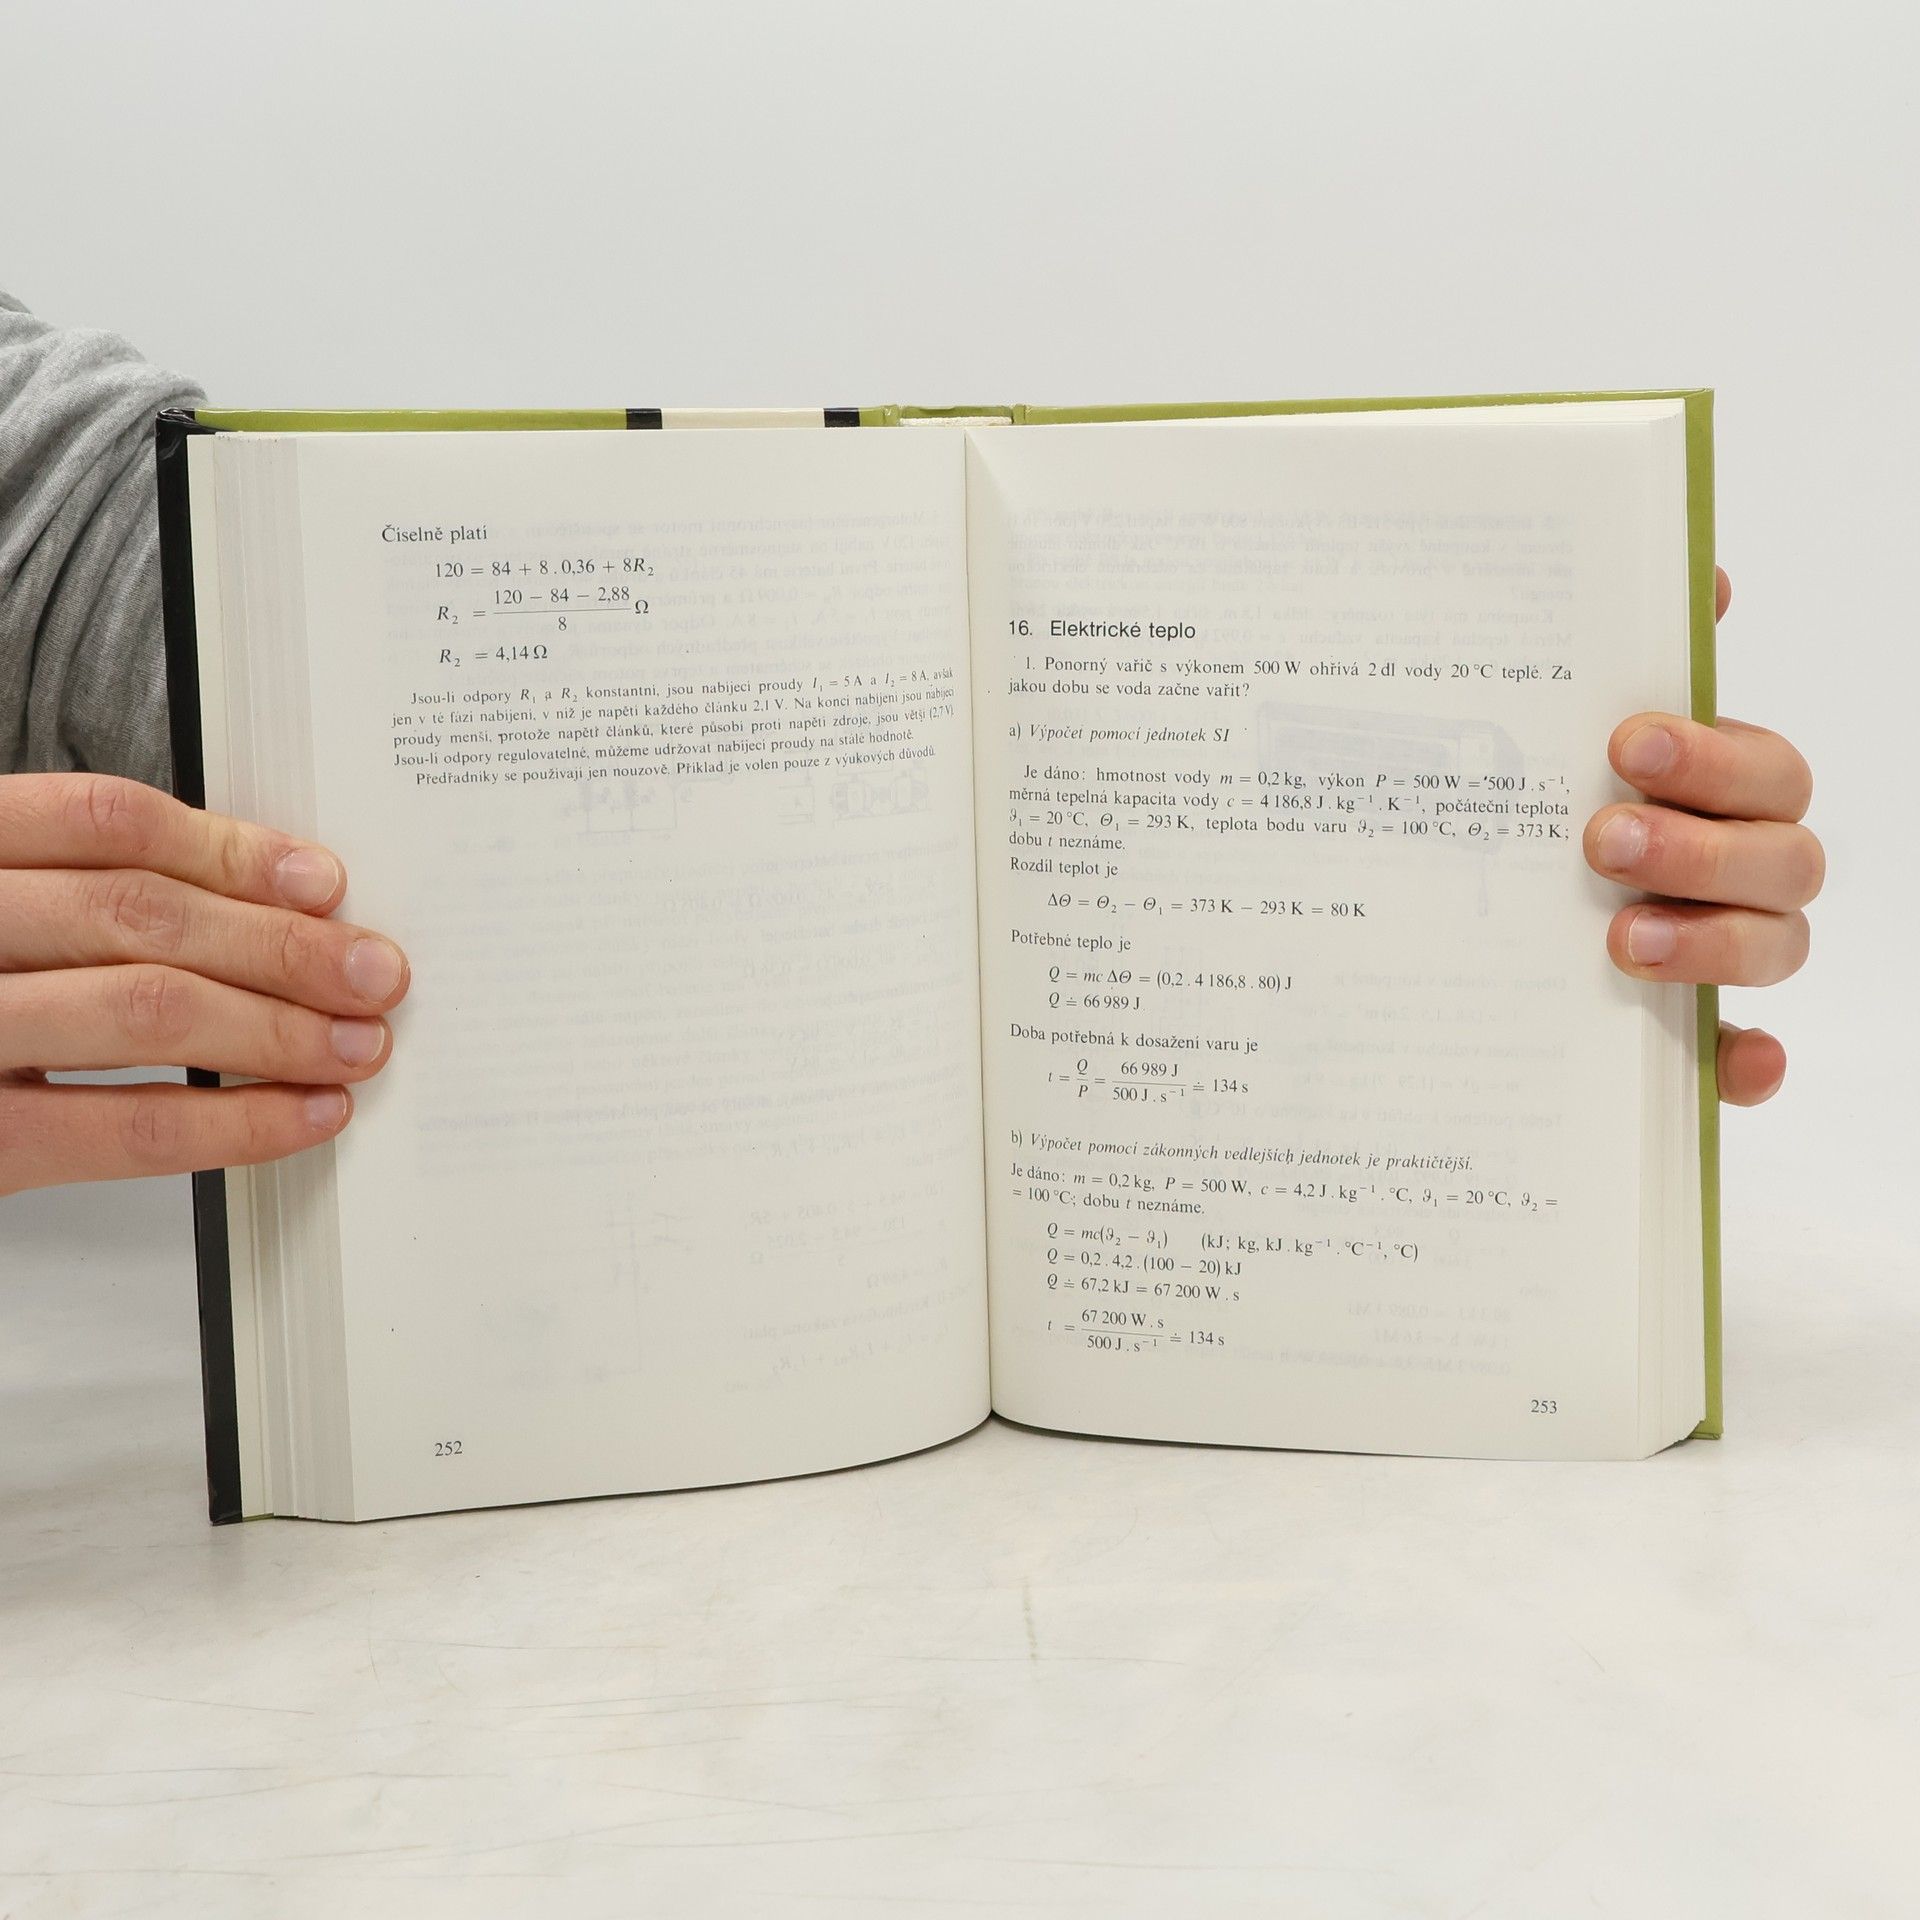 Číselně platí
120 = 84 + 8 . 0,36 + 8R₂
R₂ = (120 − 84 − 2,88)/8 Ω
R₂ = 4,14 Ω
Jsou-li odpory R₁ a R₂ konstantní, jsou nabíjecí proudy I₁ = 5 A a I₂ = 8 A, avšak
jen v té fázi nabíjení, v níž je napětí každého článku 2,1 V. Na konci nabíjení jsou nabíjecí
proudy menší, protože napětí článků, které působí proti napětí zdroje, jsou větší (2,7 V).
Jsou-li odpory regulovatelné, můžeme udržovat nabíjecí proudy na stálé hodnotě.
Předřadníky se používají jen nouzově. Příklad je volen pouze z výukových důvodů.
252
16. Elektrické teplo
1. Ponorný vařič s výkonem 500 W ohřívá 2 dl vody 20 °C teplé. Za
jakou dobu se voda začne vařit?
a) Výpočet pomocí jednotek SI
Je dáno: hmotnost vody m = 0,2 kg, výkon P = 500 W = 500 J . s⁻¹,
měrná tepelná kapacita vody c = 4 186,8 J . kg⁻¹ . K⁻¹, počáteční teplota
ϑ₁ = 20 °C, Θ₁ = 293 K, teplota bodu varu ϑ₂ = 100 °C, Θ₂ = 373 K;
dobu t neznáme.
Rozdíl teplot je
ΔΘ = Θ₂ − Θ₁ = 373 K − 293 K = 80 K
Potřebné teplo je
Q = mc ΔΘ = (0,2 . 4 186,8 . 80) J
Q ≐ 66 989 J
Doba potřebná k dosažení varu je
t = Q/P = 66 989 J/500 J . s⁻¹ ≐ 134 s
b) Výpočet pomocí zákonných vedlejších jednotek je praktičtější.
Je dáno: m = 0,2 kg, P = 500 W, c = 4,2 J . kg⁻¹ . °C, ϑ₁ = 20 °C, ϑ₂ =
= 100 °C; dobu t neznáme.
Q = mc(ϑ₂ − ϑ₁) (kJ; kg, kJ . kg⁻¹ . °C⁻¹, °C)
Q = 0,2 . 4,2 . (100 − 20) kJ
Q ≐ 67,2 kJ = 67 200 W . s
t = 67 200 W . s/500 J . s⁻¹ ≐ 134 s
253